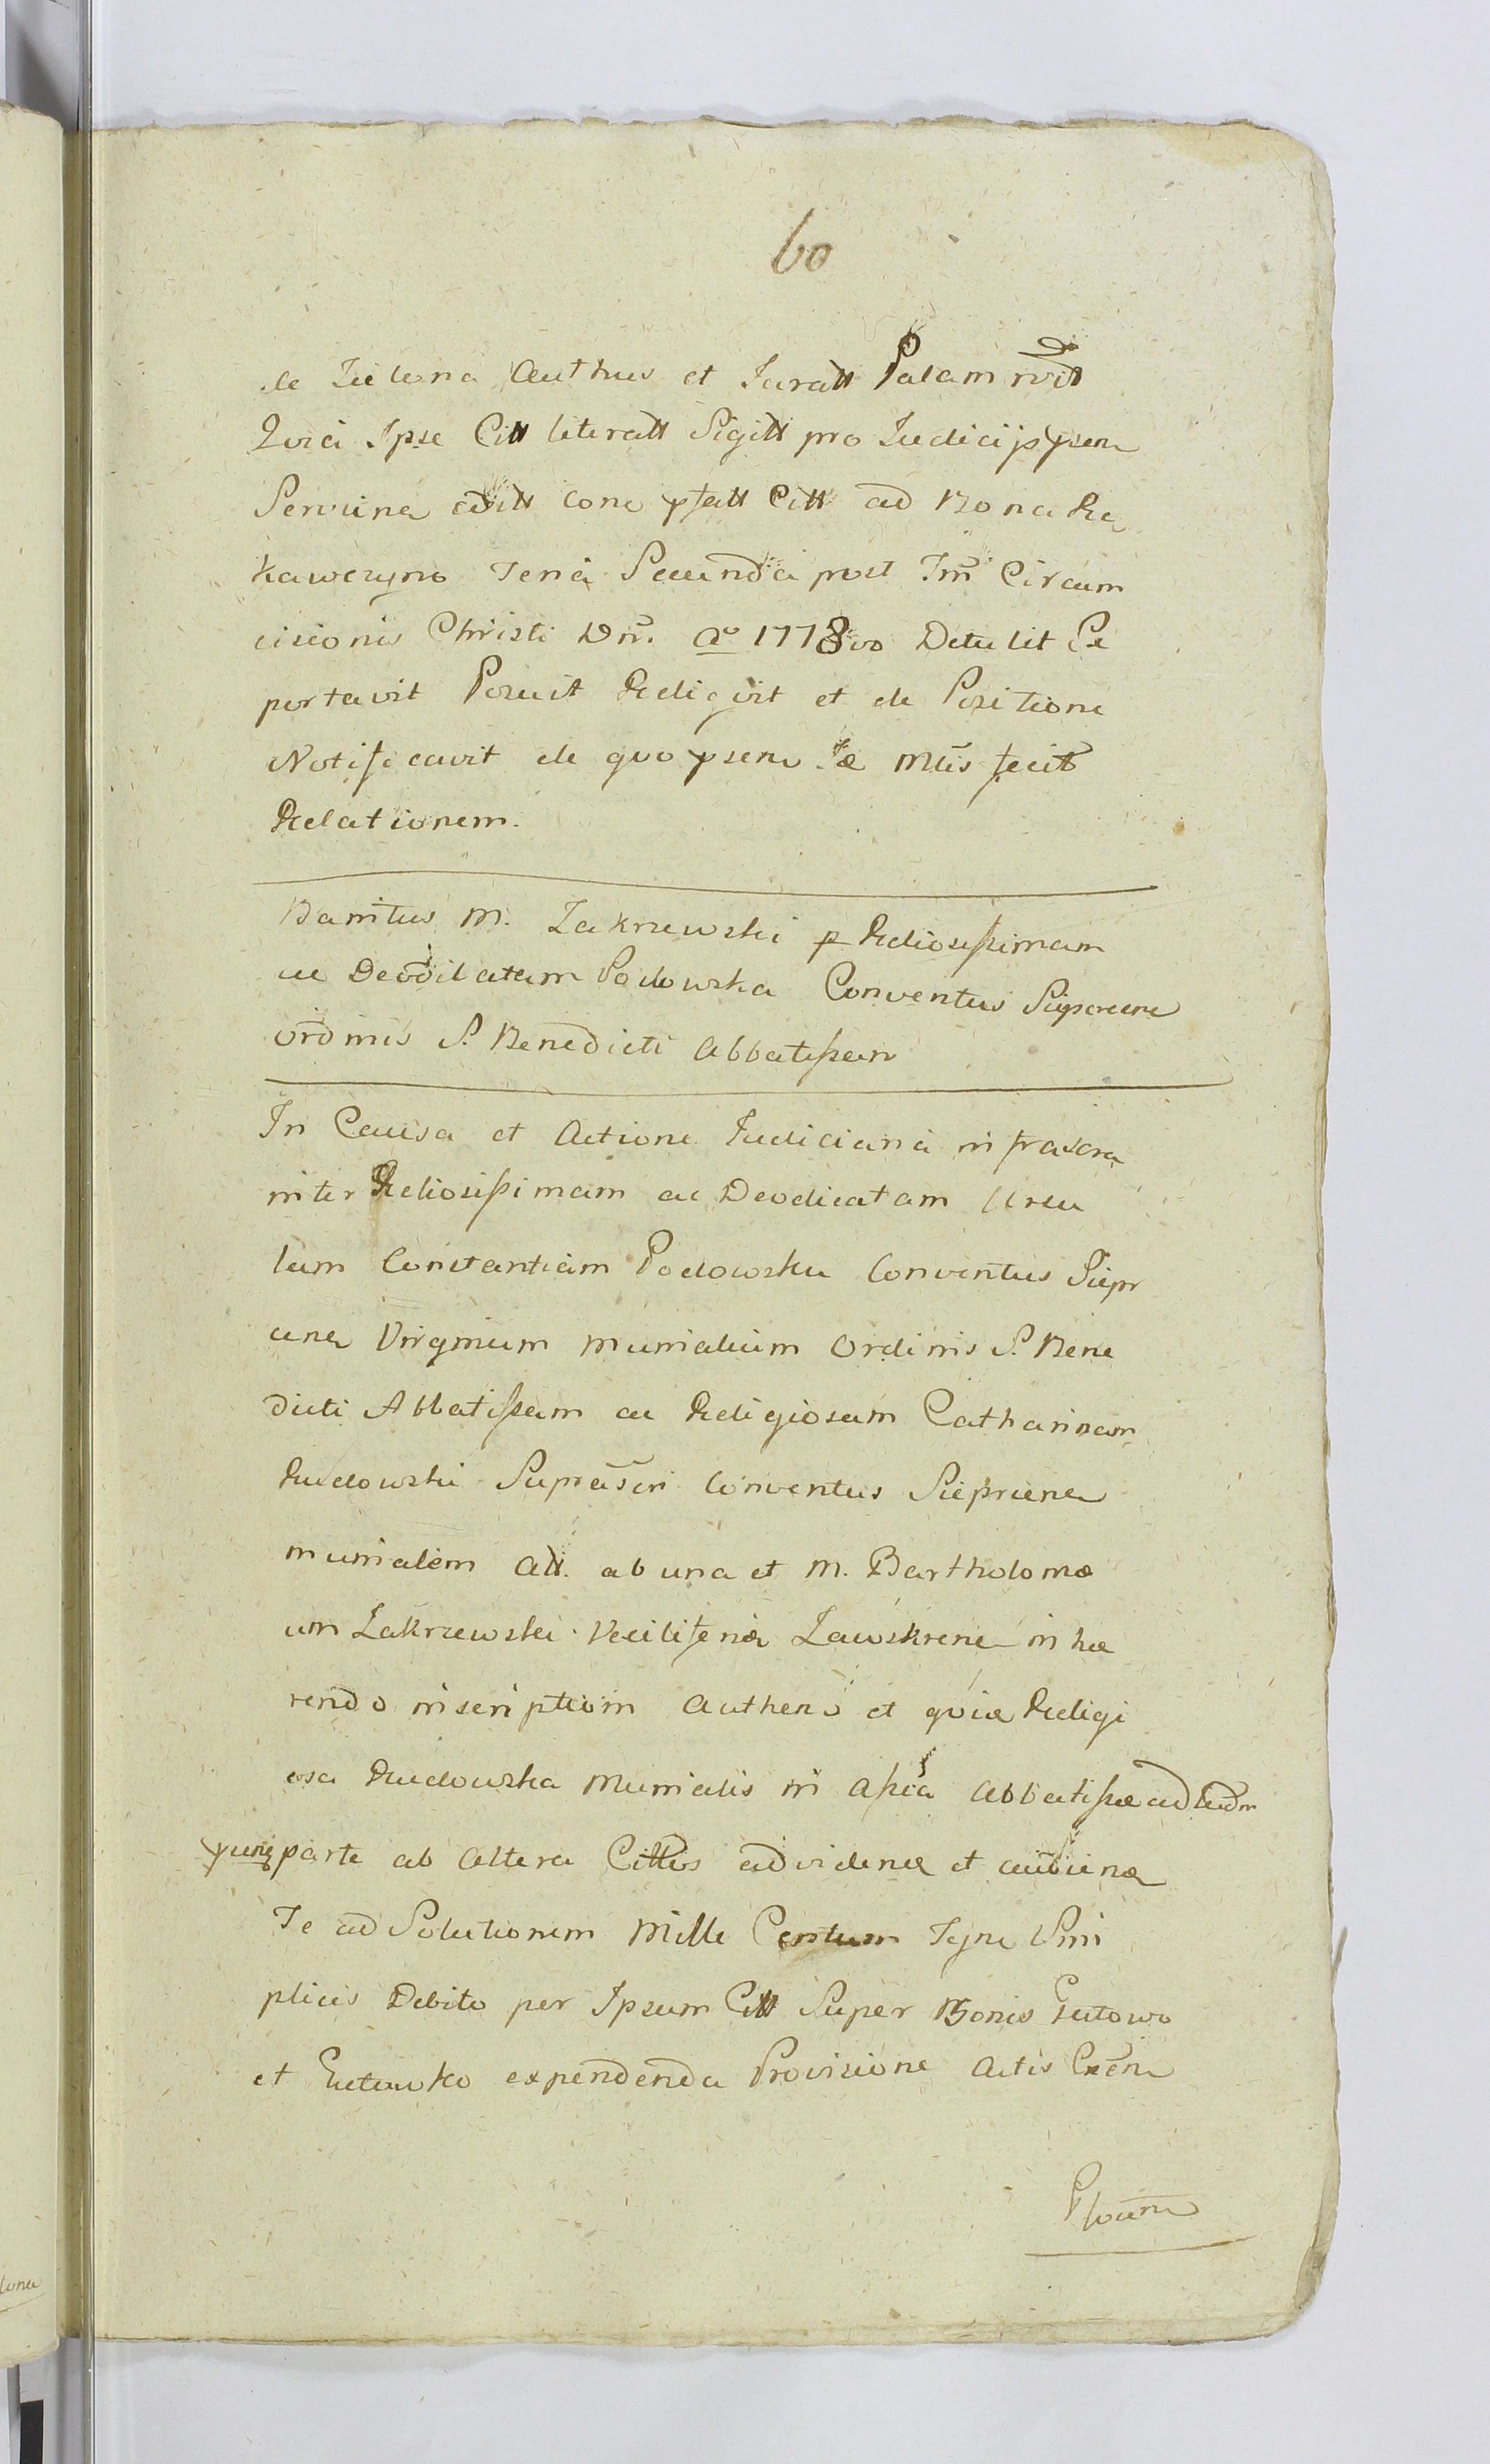 60
de Zielona Authus et Juratt Palam rvit
Qvia Ipse Citt literatt Sigitt pro Judicijs psen
Servine conc pfatt Citt ad Bona Ra
kawczyno Feria Secunda post Fm Circum
cisionis Christi Dni. Ao 1778vo Detulit Ce
portavit Posuit Reliqvit et de Positione
Notificavit de quo psens fecit
Relationem.
Banitus M. Zakrzewski p Reliosissimam
ac Deodicatam Podowska Conventus Sieprcene
Ordinis S. Benedicti Abbatissam
In Causa et Actione Judiciaria infrascra
inter Reliosissimam ac Deodicatam Ursu
lam Constantiam Podowska Conventus Siepr
cene Virginum Monialium Ordinis S. Bene
dicti Abbatissam ac Religiosam Catharinam
Rudowska Suprascri Conventus Sieprcene
Monialem Att. ab una et M. Bartholomæ
um Zakrzewski Vexilliferia Zawskrene inhæ
rendo inscriptiom Authen et qvia Religi
osa Rudowska Monialis in Abbatissæ ad
parte ab Altera Cittus ad videnæ et audienæ
Se ad Solutionem Mille Centum Tynf Sim
plicis Debito per Ipsum Citt Super Bonis Gutowo
et Gutowko expendenda Provisione Actis